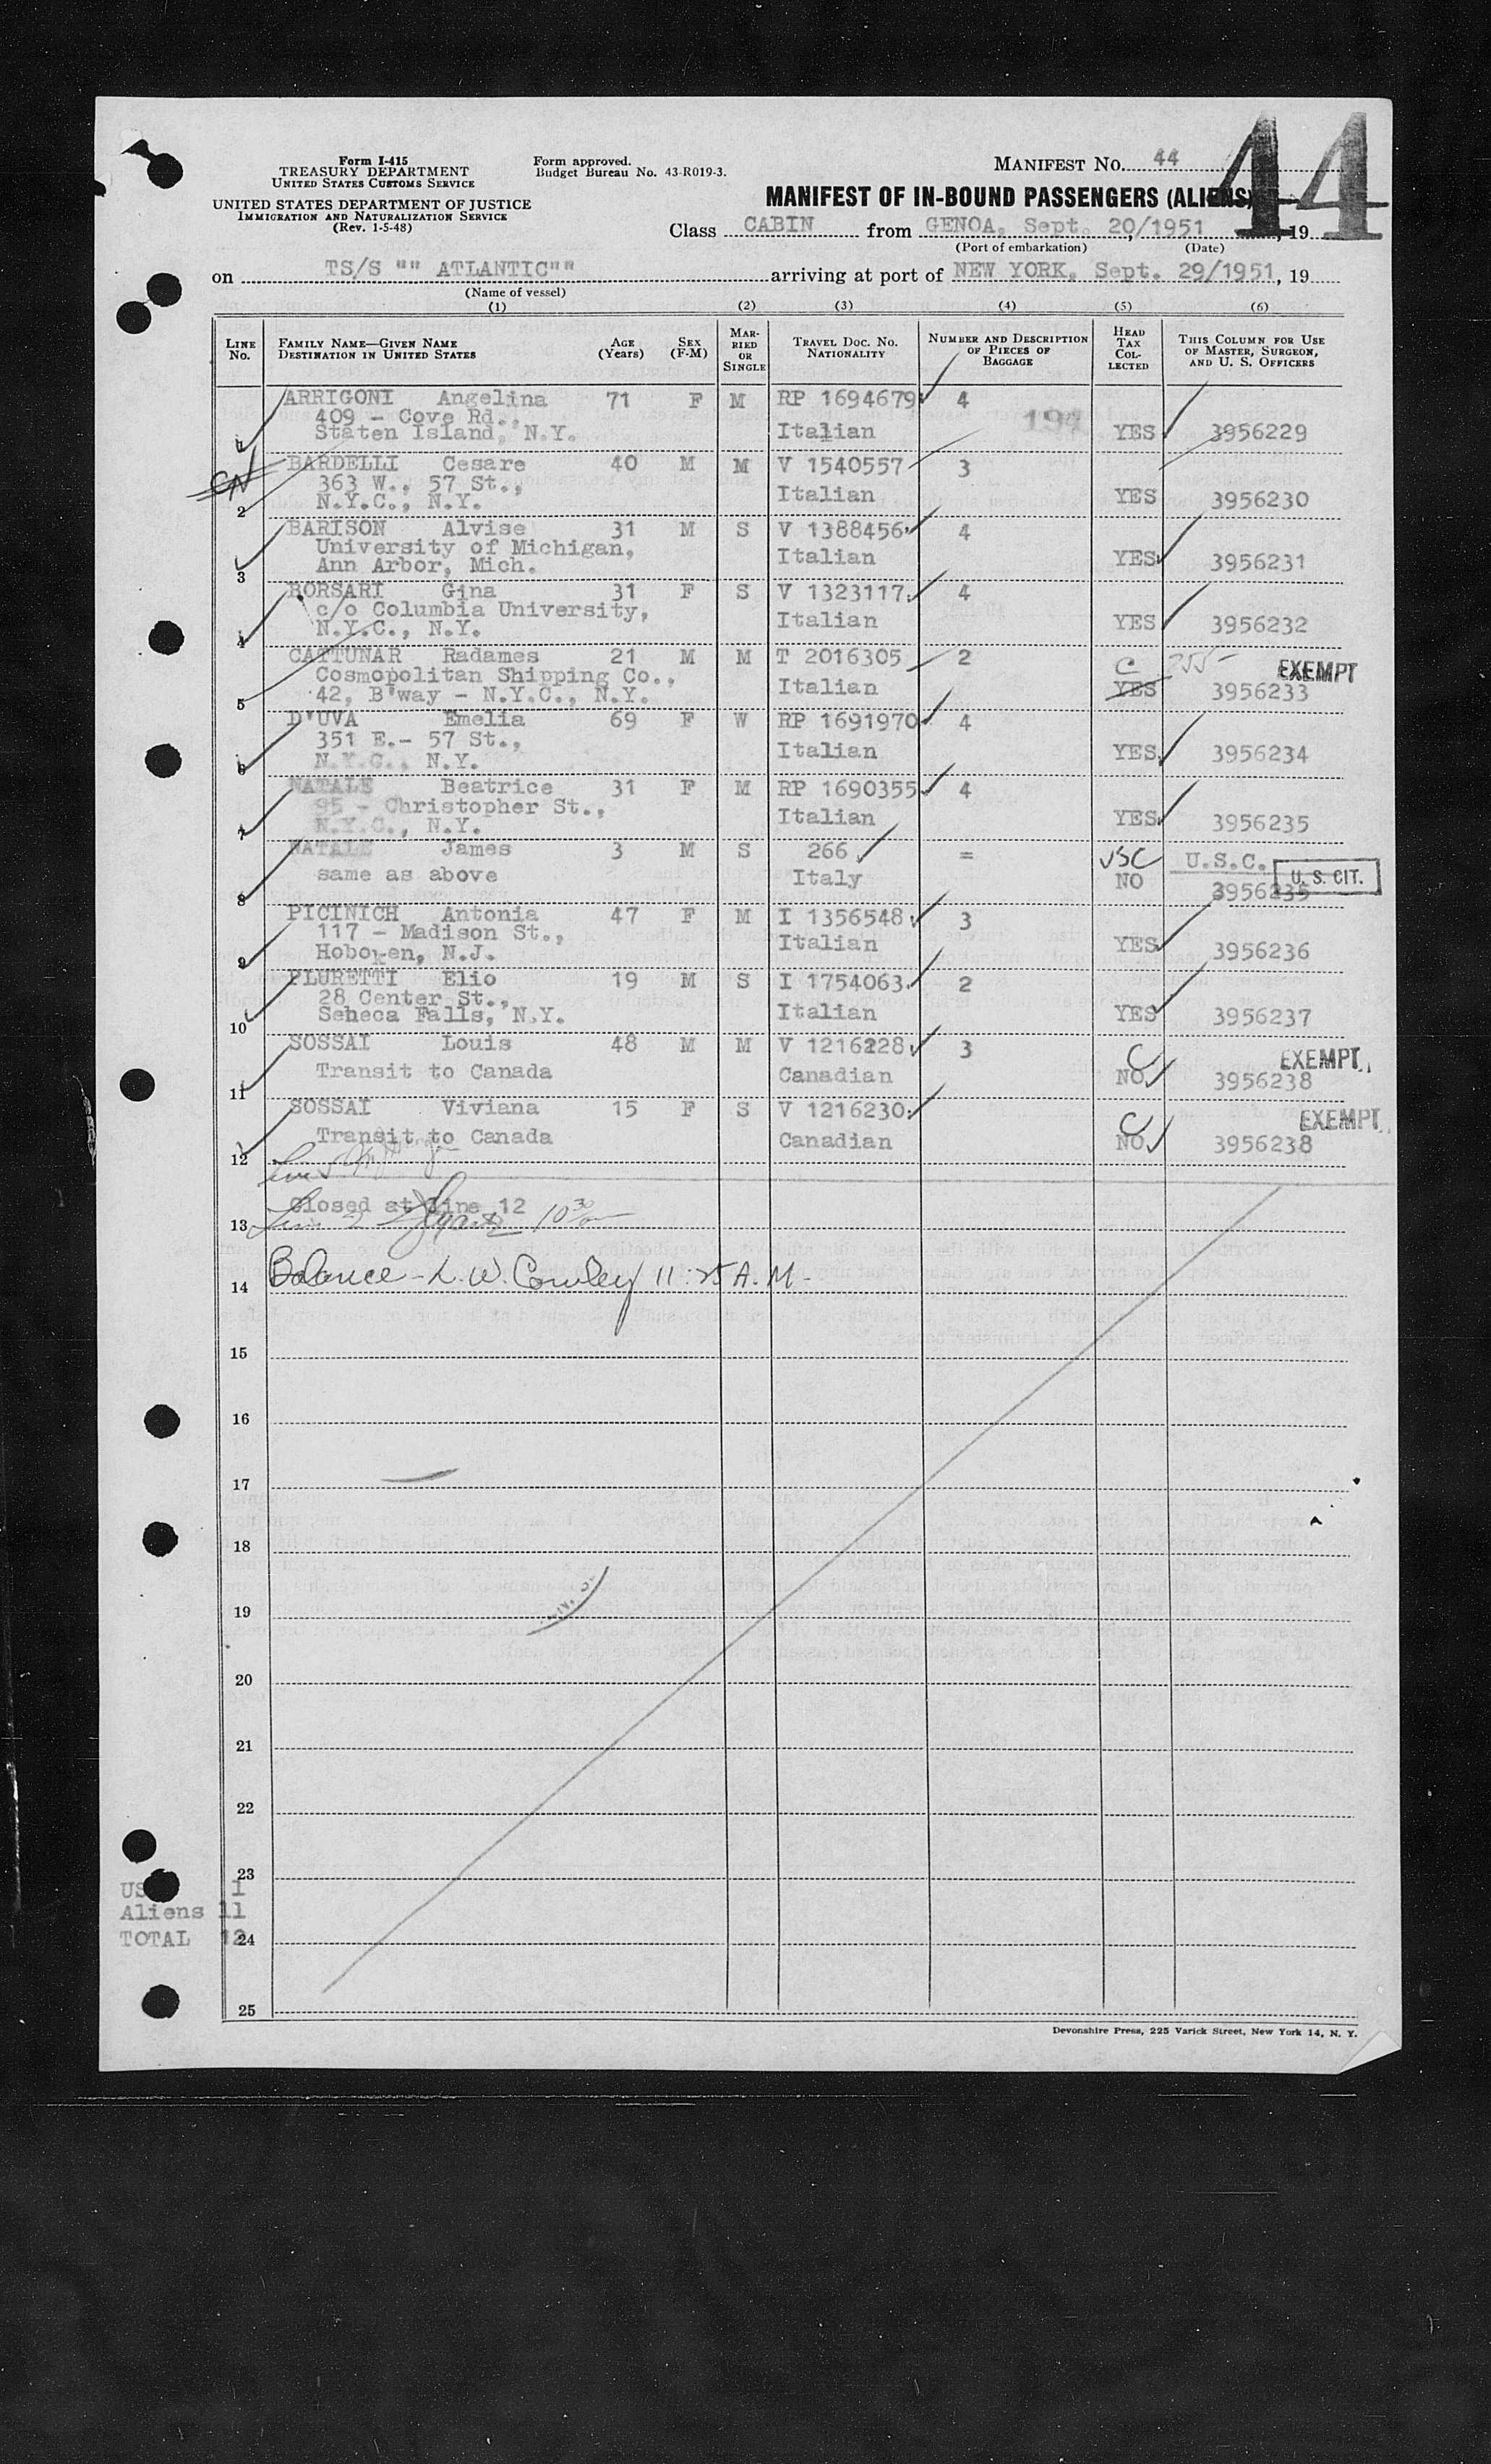 Form I-415
TREASURY DEPARTMENT
UNITED STATES CUSTOMS SERVICE
UNITED STATES DEPARTMENT OF JUSTICE
IMMIGRATION AND NATURALIZATION SERVICE
(Rev. 1-5-48)
Form approved.
Budget Bureau No. 43-R019-3.
MANIFEST NO. 44
44
MANIFEST OF IN-BOUND PASSENGERS (ALIENS)
Class CABIN from GENOA, Sept. 20/1951, 19
(Port of embarkation) (Date)
on TS/S "" ATLANTIC"" arriving at port of NEW YORK, Sept. 29/1951, 19
(Name of vessel)
(1) (2) (3) (4) (5) (6)
LINE No. FAMILY NAME—GIVEN NAME DESTINATION IN UNITED STATES AGE (Years) SEX (F-M) MARRIED OR SINGLE TRAVEL DOC. NO. NATIONALITY NUMBER AND DESCRIPTION OF PIECES OF BAGGAGE HEAD TAX COLLECTED THIS COLUMN FOR USE OF MASTER, SURGEON, AND U. S. OFFICERS
ARRIGONI Angelina 71 F M RP 1694679 4
409 - Cove Rd., 194
1 Staten Island, N.Y. Italian YES 3956229
BARDELLI Cesare 40 M M V 1540557 3
CN 363 W., 57 St.,
2 N.Y.C., N.Y. Italian YES 3956230
BARISON Alvise 31 M S V 1388456 4
University of Michigan,
3 Ann Arbor, Mich. Italian YES 3956231
BORSARI Gina 31 F S V 1323117 4
c/o Columbia University,
4 N.Y.C., N.Y. Italian YES 3956232
CATTUNAR Radames 21 M M T 2016305 2 C 255- EXEMPT
Cosmopolitan Shipping Co.,
5 42, B'way - N.Y.C., N.Y. Italian YES 3956233
D'UVA Emelia 69 F W RP 1691970 4
351 E.- 57 St.,
6 N.Y.C., N.Y. Italian YES 3956234
NATALE Beatrice 31 F M RP 1690355 4
95 - Christopher St.,
7 N.Y.C., N.Y. Italian YES 3956235
NATALE James 3 M S 266 = USC U.S.C.
8 same as above Italy NO 3956235 U. S. CIT.
PICINICH Antonia 47 F M I 1356548 3
117 - Madison St.,
9 Hoboken, N.J. Italian YES 3956236
PLURETTI Elio 19 M S I 1754063 2
28 Center St.,
10 Seheca Falls, N.Y. Italian YES 3956237
SOSSAI Louis 48 M M V 1216228 3 C EXEMPT
11 Transit to Canada Canadian NO 3956238
SOSSAI Viviana 15 F S V 1216230 C EXEMPT
12 Transit to Canada Canadian NO 3956238
Closed at line 12
13 Line 2 10 30
14 Balance - L. W. Conley 11:25 A.M.
15
16
17
18
19
20
21
22
23
US 1
Aliens 11
TOTAL 12
24
25
Devonshire Press, 225 Varick Street, New York 14, N. Y.